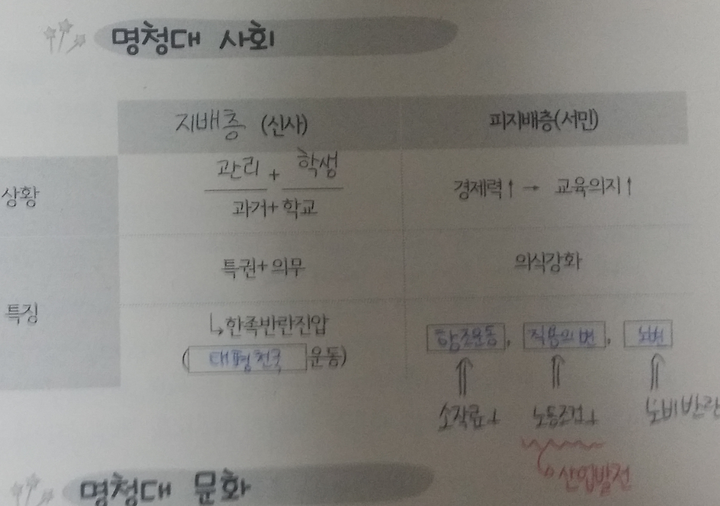 명청대 사회
지배층 (신사) 피지배층(서민)
상황 관리 + 학생 경제력↑ → 교육의지↑
과거+학교
특권+의무 의식강화
특징
↳한족반란진압
(대평천국 운동) 항조운동, 직용의변, 노변
소작료↓ 노동조건↓ 노비반란
산업발전
명청대 문화